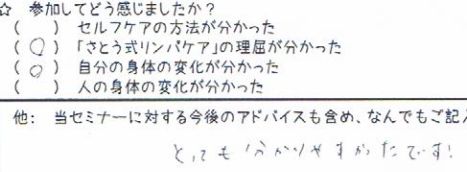 ☆ 参加してどう感じましたか？
（　　）セルフケアの方法が分かった
（ ○ ）「さとう式リンパケア」の理屈が分かった
（ ○ ）自分の身体の変化が分かった
（　　）人の身体の変化が分かった
他： 当セミナーに対する今後のアドバイスも含め、なんでもご記入
とっても分かりやすかったです！